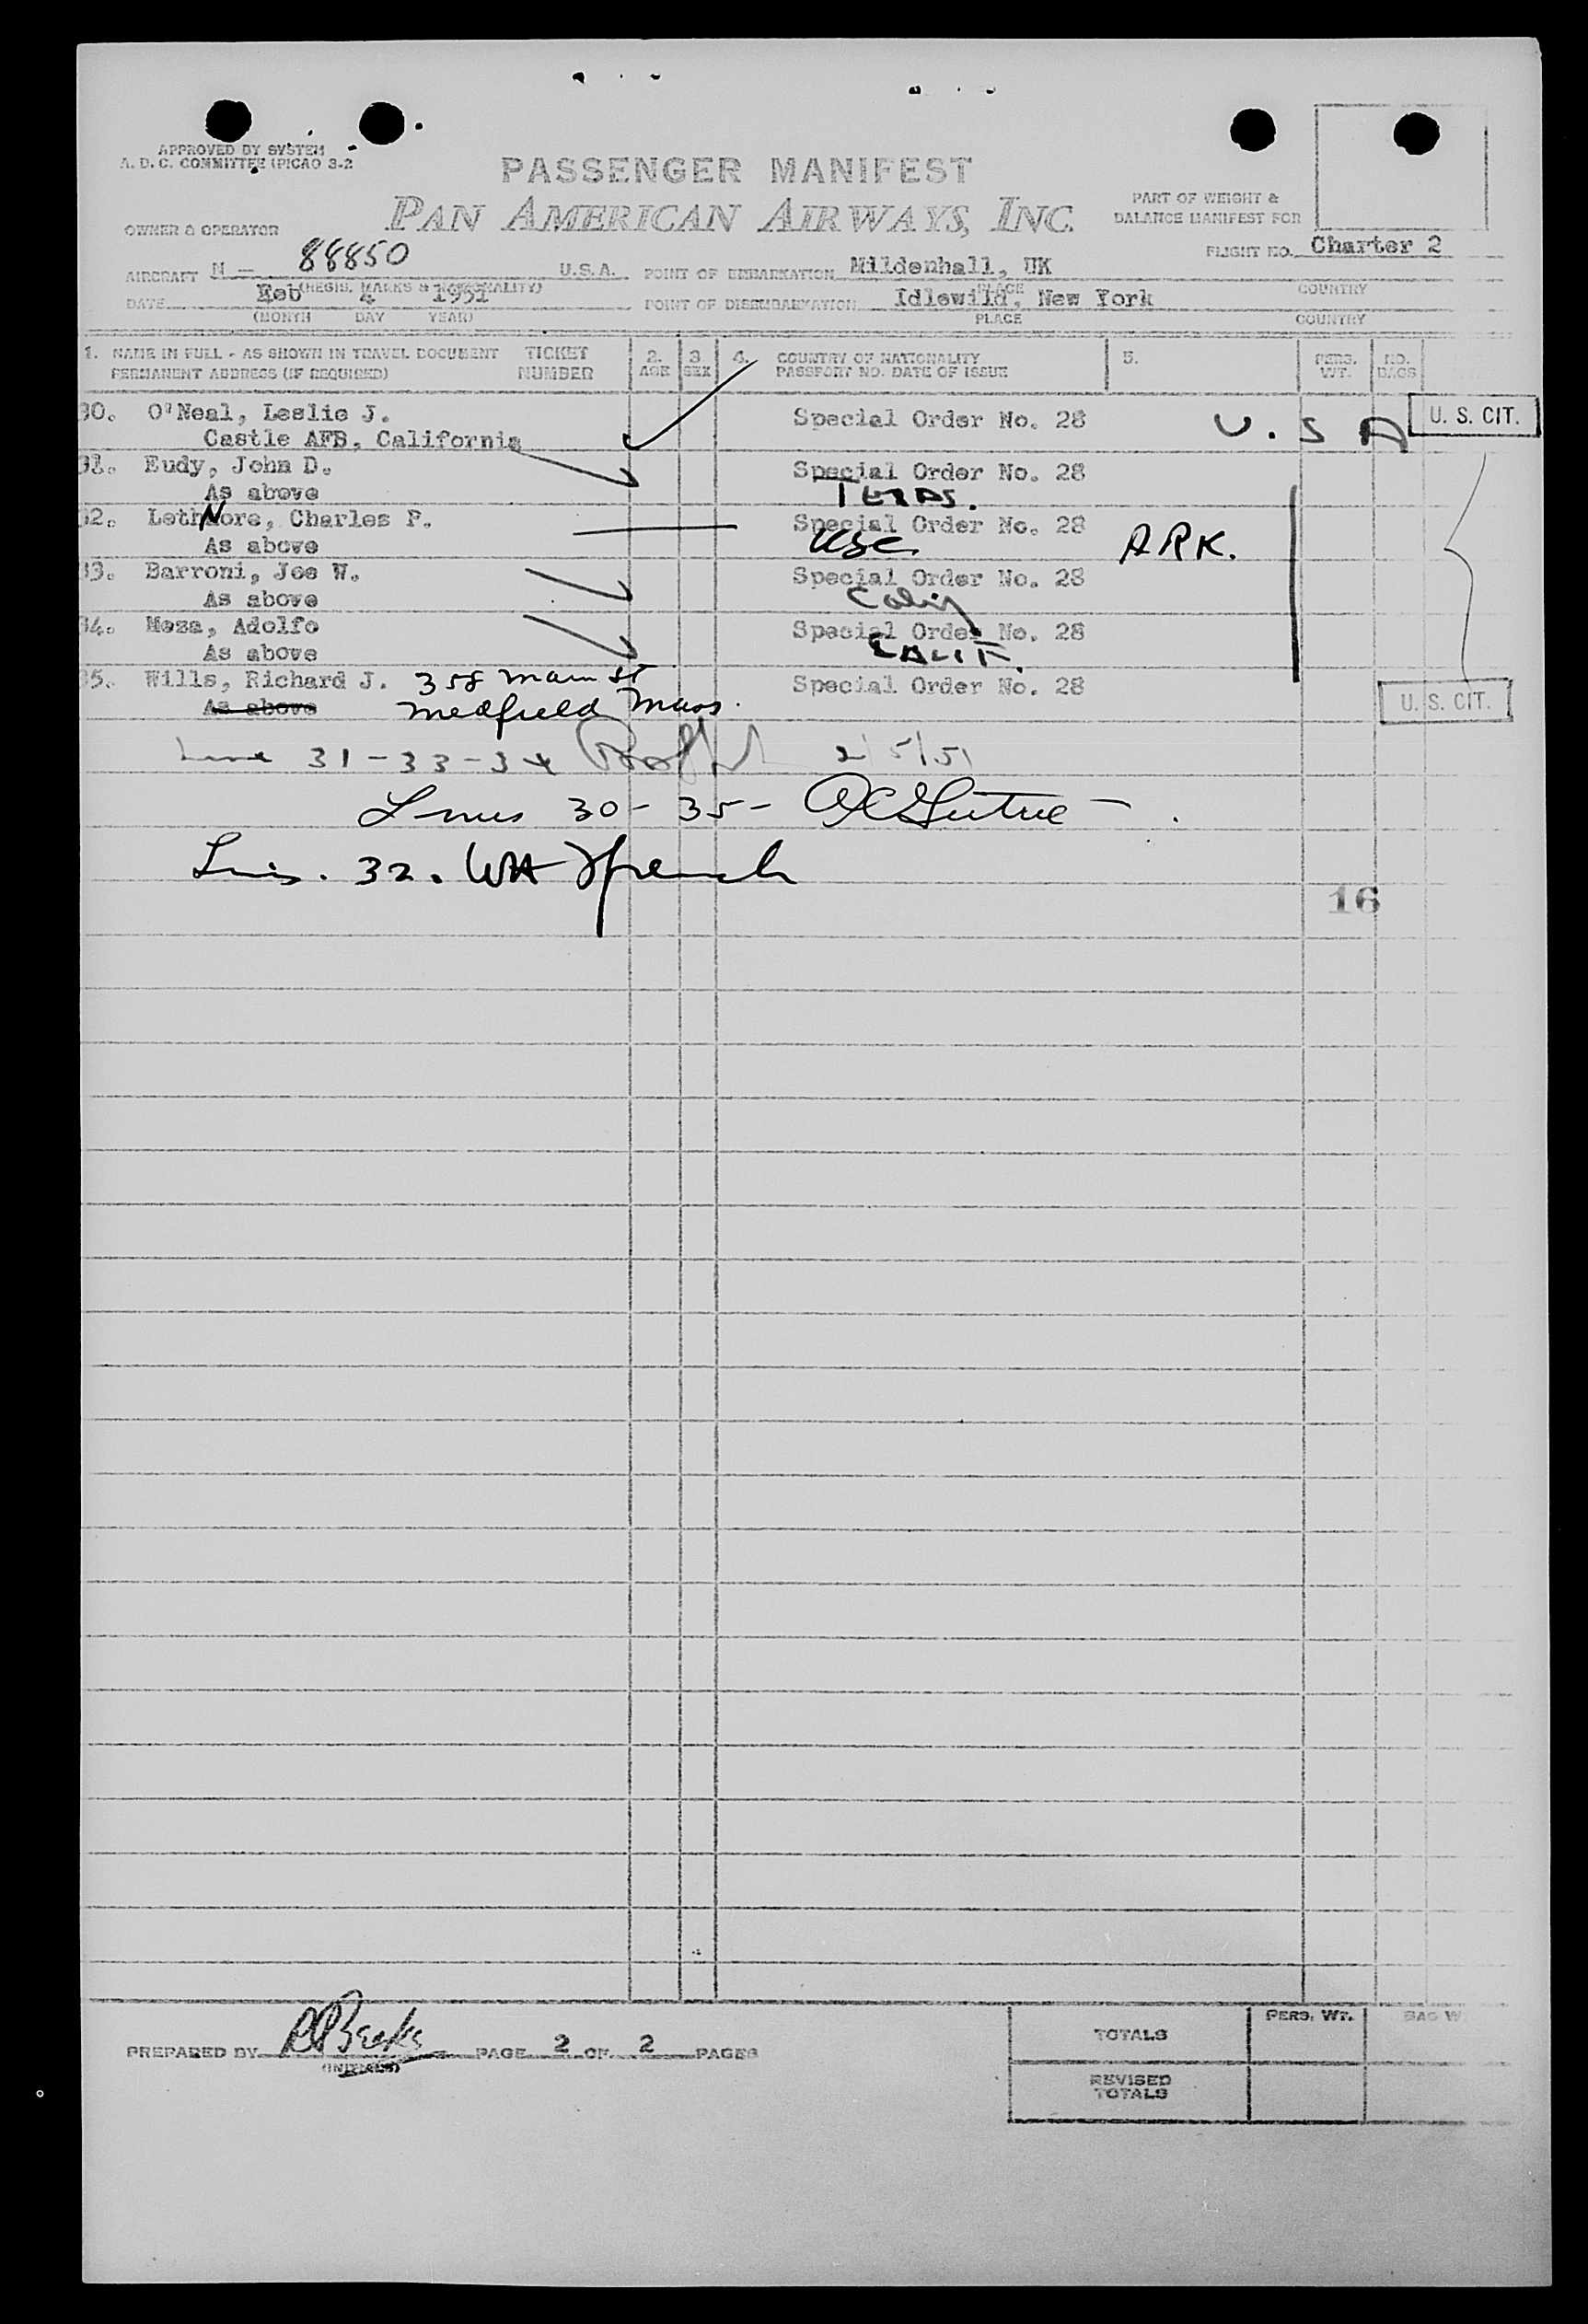 APPROVED BY SYSTEM
A. D. C. COMMITTEE (PICAO 3-2
PASSENGER MANIFEST
PAN AMERICAN AIRWAYS, INC.
PART OF WEIGHT &
BALANCE MANIFEST FOR
OWNER & OPERATOR
FLIGHT NO. Charter 2
AIRCRAFT N — 88850 U.S.A.
POINT OF EMBARKATION Mildenhall, UK
(REGIS. MARKS & NATIONALITY)
PLACE COUNTRY
DATE Feb 4 1951
POINT OF DISEMBARKATION Idlewild, New York
(MONTH DAY YEAR)
PLACE COUNTRY
1. NAME IN FULL - AS SHOWN IN TRAVEL DOCUMENT TICKET 2. 3. 4. COUNTRY OF NATIONALITY 5. PERS. NO.
PERMANENT ADDRESS (IF REQUIRED) NUMBER AGE SEX PASSPORT NO. DATE OF ISSUE WT. BAGS
30. O'Neal, Leslie J. Special Order No. 28 U. S A U. S. CIT.
Castle AFB, California
31. Eudy, John D. Special Order No. 28
As above TEXAS.
32. Lethnore, Charles F. Special Order No. 28
As above USC ARK.
33. Barroni, Joe W. Special Order No. 28
As above Calif
34. Meza, Adolfo Special Order No. 28
As above CALIF.
35. Wills, Richard J. 358 Main St Special Order No. 28
As above Medfield Mass. U. S. CIT.
Line 31-33-34 2/5/51
Lines 30-35-
Line. 32. WA French
16
PREPARED BY
(INITIALS)
PAGE 2 OF 2 PAGES
PERS. WT. BAG W
TOTALS
REVISED
TOTALS